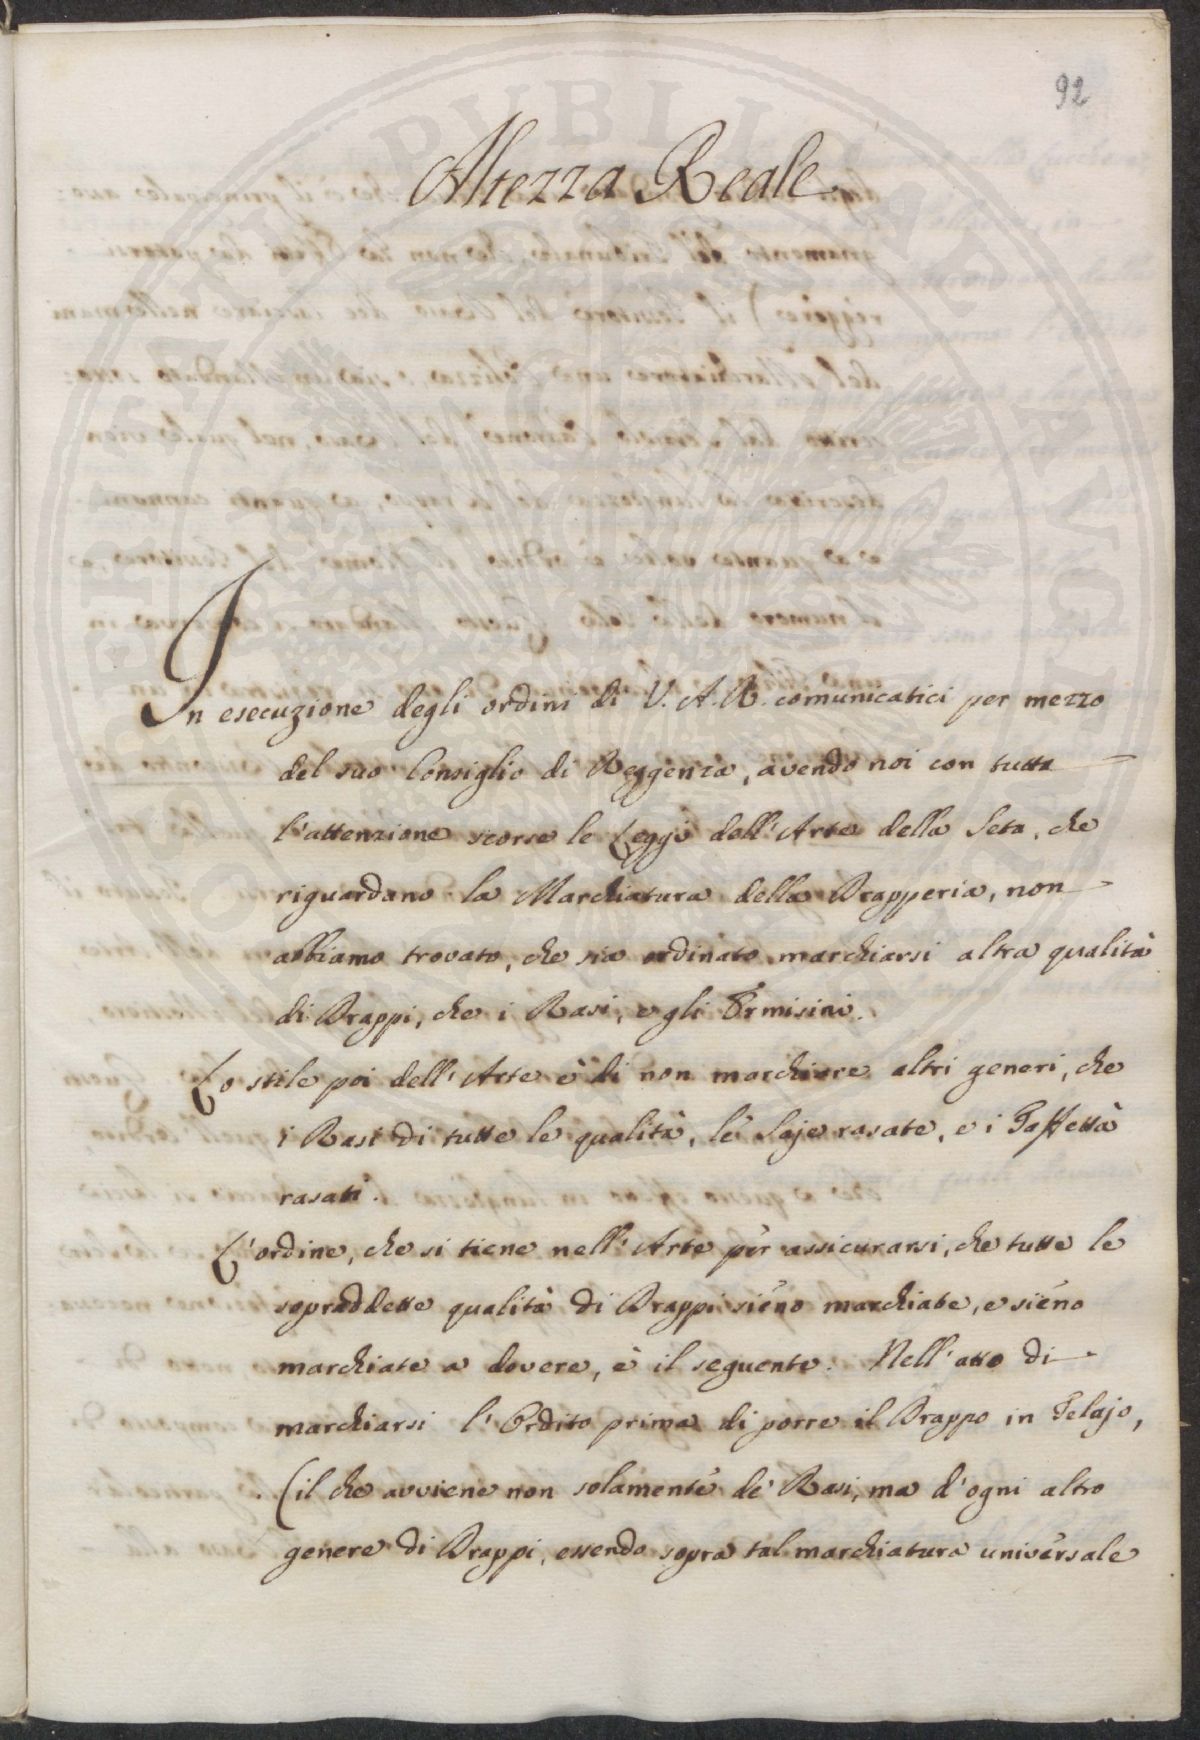 92
Altezza Reale
In esecuzione degli ordini di V. A. R. comunicatici per mezzo
del suo Consiglio di Reggenza, avendo noi con tutta
l'attenzione scorse le Leggi dell'Arte della Seta, che
riguardano la Marchiatura della Drapperia, non
abbiamo trovato, che sia ordinato marchiarsi altra qualità
di Drappi, che i Rasi, e gli Ermisini.
Lo stile poi dell'Arte è di non marchiare altri generi, che
i Rasi di tutte le qualità, le Saje rasate, e i Taffettà
rasati.
L'ordine, che si tiene nell'Arte per assicurarsi, che tutte le
sopraddette qualità di Drappi siéno marchiate, e siéno
marchiate a dovere, è il seguente. Nell'atto di
marchiarsi l'Ordito prima di porre il Drappo in Telajo,
(il che avviene non solamente de' Rasi, ma d'ogni altro
genere di Drappi, essendo sopra tal marchiatura universale